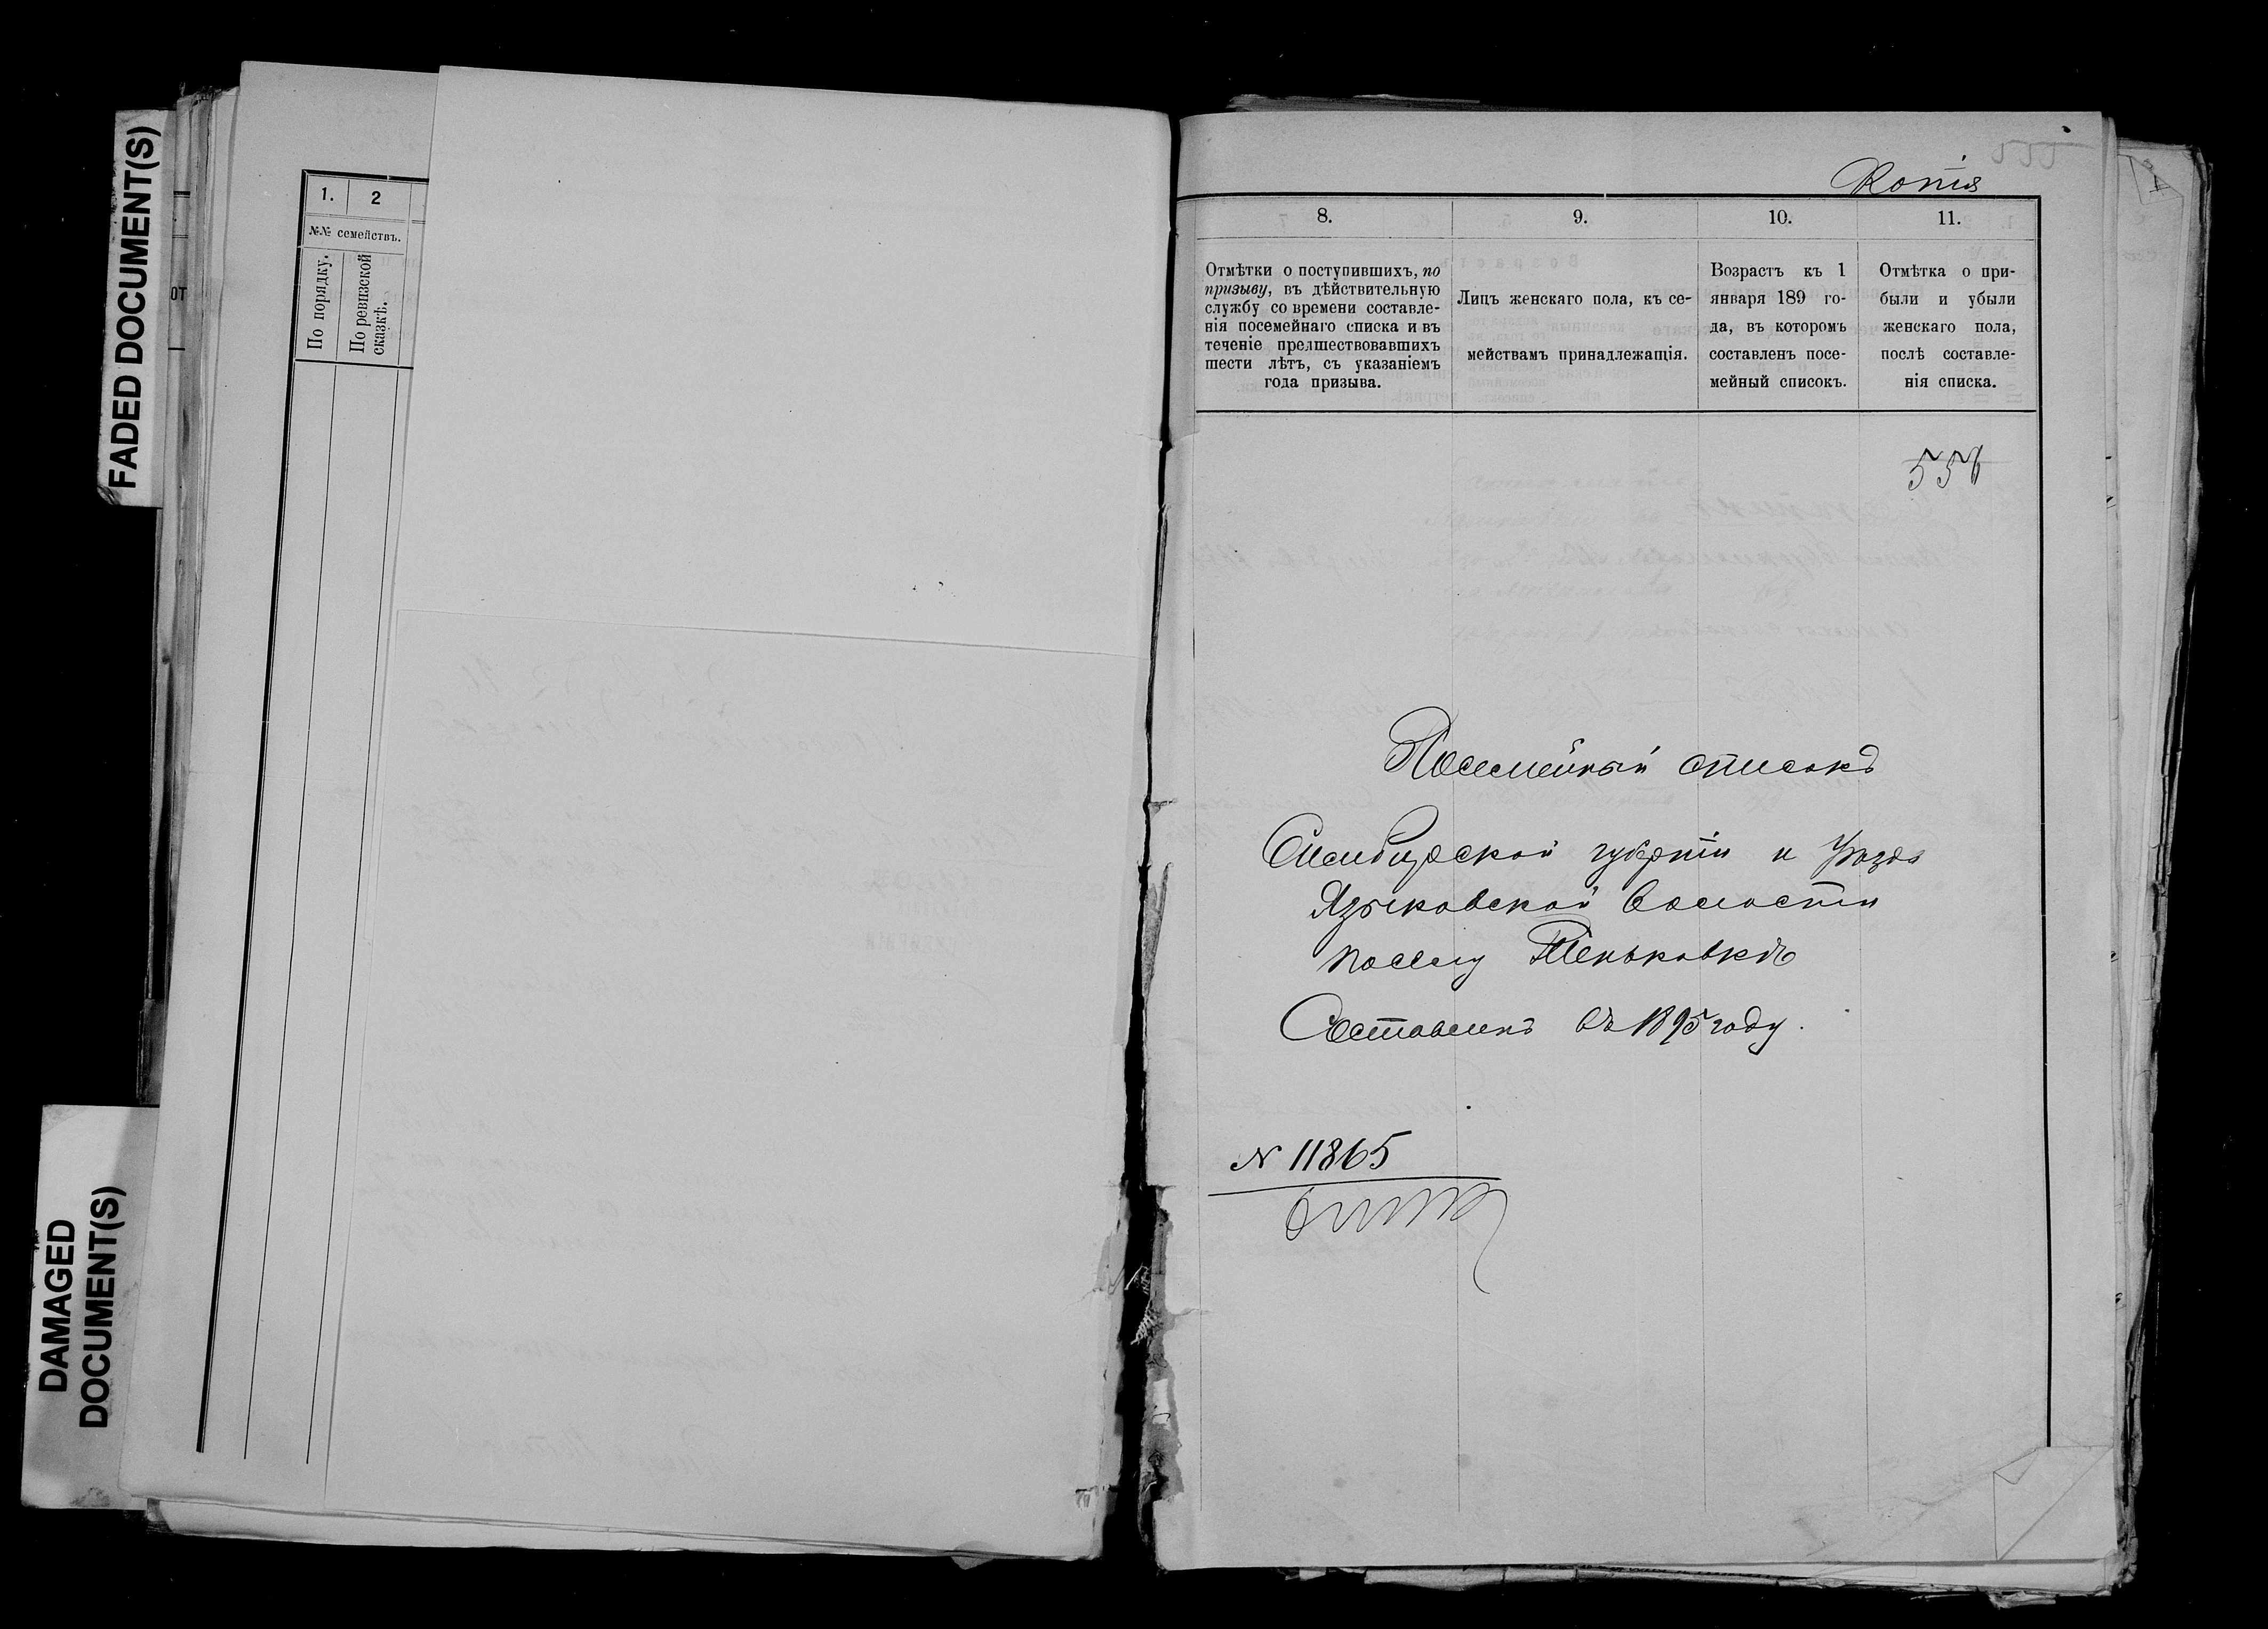 FADED DOCUMENT(S)
DAMAGED
DOCUMENT(S)
1.
2
№№ семействъ.
По порядку.
По ревизской
сказкѣ.
Копія
8.
9.
10.
11.
Отмѣтки о поступившихъ, по
призыву, въ дѣйствительную
службу со времени составле-
нія посемейнаго списка и въ
теченіе предшествовавшихъ
шести лѣтъ, съ указаніемъ
года призыва.
Лицъ женскаго пола, къ се-
мействамъ принадлежащія.
Возрастъ къ 1
января 189 го-
да, въ которомъ
составленъ посе-
мейный списокъ.
Отмѣтка о при-
были и убыли
женскаго пола,
послѣ составле-
нія списка.
556
Посемейный списокъ
Симбирской губерніи и уѣзда
Языковской волости
по селу Теньковкѣ
Составленъ въ 1895 году.
№ 11865